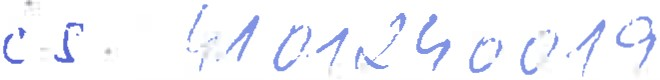 cs 4101240019